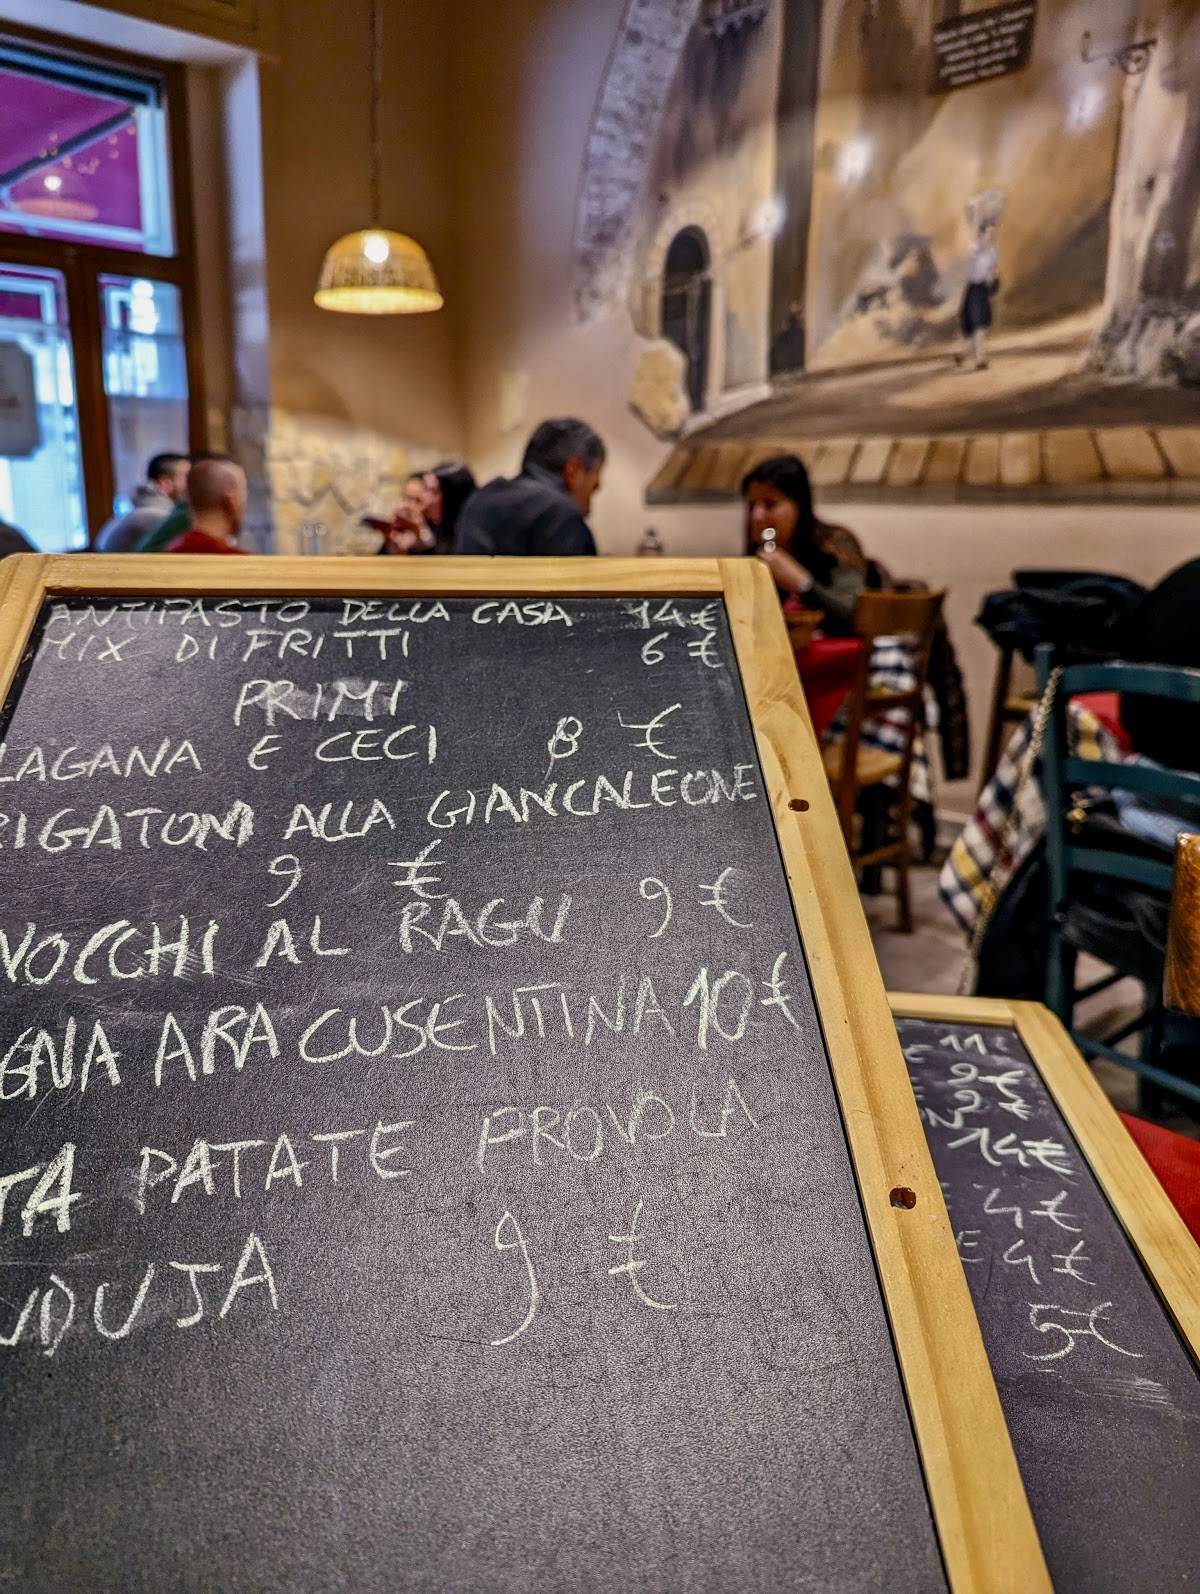 ANTIPASTO DELLA CASA 14€
MIX DI FRITTI 6 €
PRIMI
LAGANA E CECI 8 €
RIGATONI ALLA GIANCALEONE
9 €
NOCCHI AL RAGU 9 €
GNA ARA CUSENTINA 10€
TA PATATE PROVOLA
NDUJA 9 €
9€
9€
14€
4€
E 4€
5€